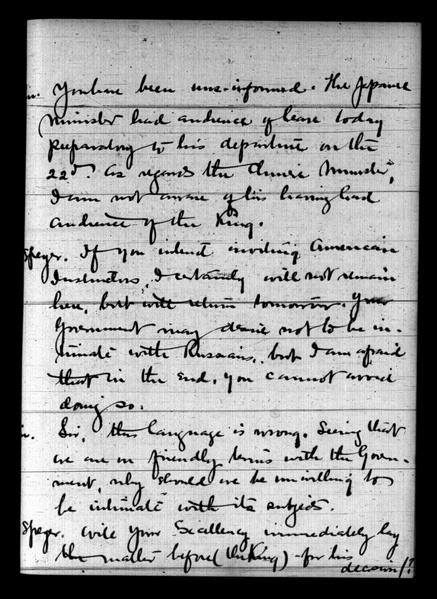 n. You have been mis-informed. The Japanese
Minister had audience of leave today
preparatory to his departure on the
22d. As regards the Chinese Minister,
I am not aware of his having had
audience of the King.
Speyer. If you intend inviting American
Instructors, I certainly will not remain
here, but will return tomorrow. Your
Government may desire not to be in-
timate with Russians, but I am afraid
that in the end, you cannot avoid
doing so.
n. Sir, this language is wrong. Seeing that
we are on friendly terms with the Govern-
ment, why should we be unwilling to
be intimate with its subjects.
Speyer. Will your Excellency immediately lay
the matter before (the King) for his
decision/?